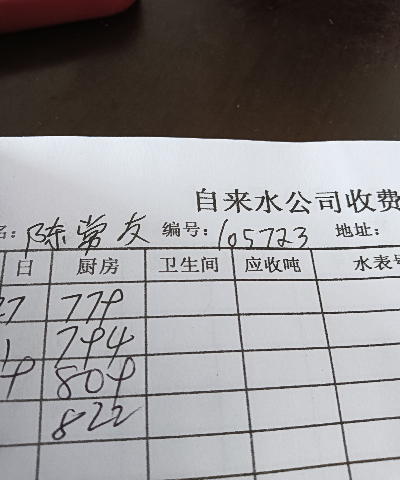 自来水公司收费
名：陈常友 编号：105723 地址：
日 厨房 卫生间 应收吨 水表号
27 779
1 794
9 809
822